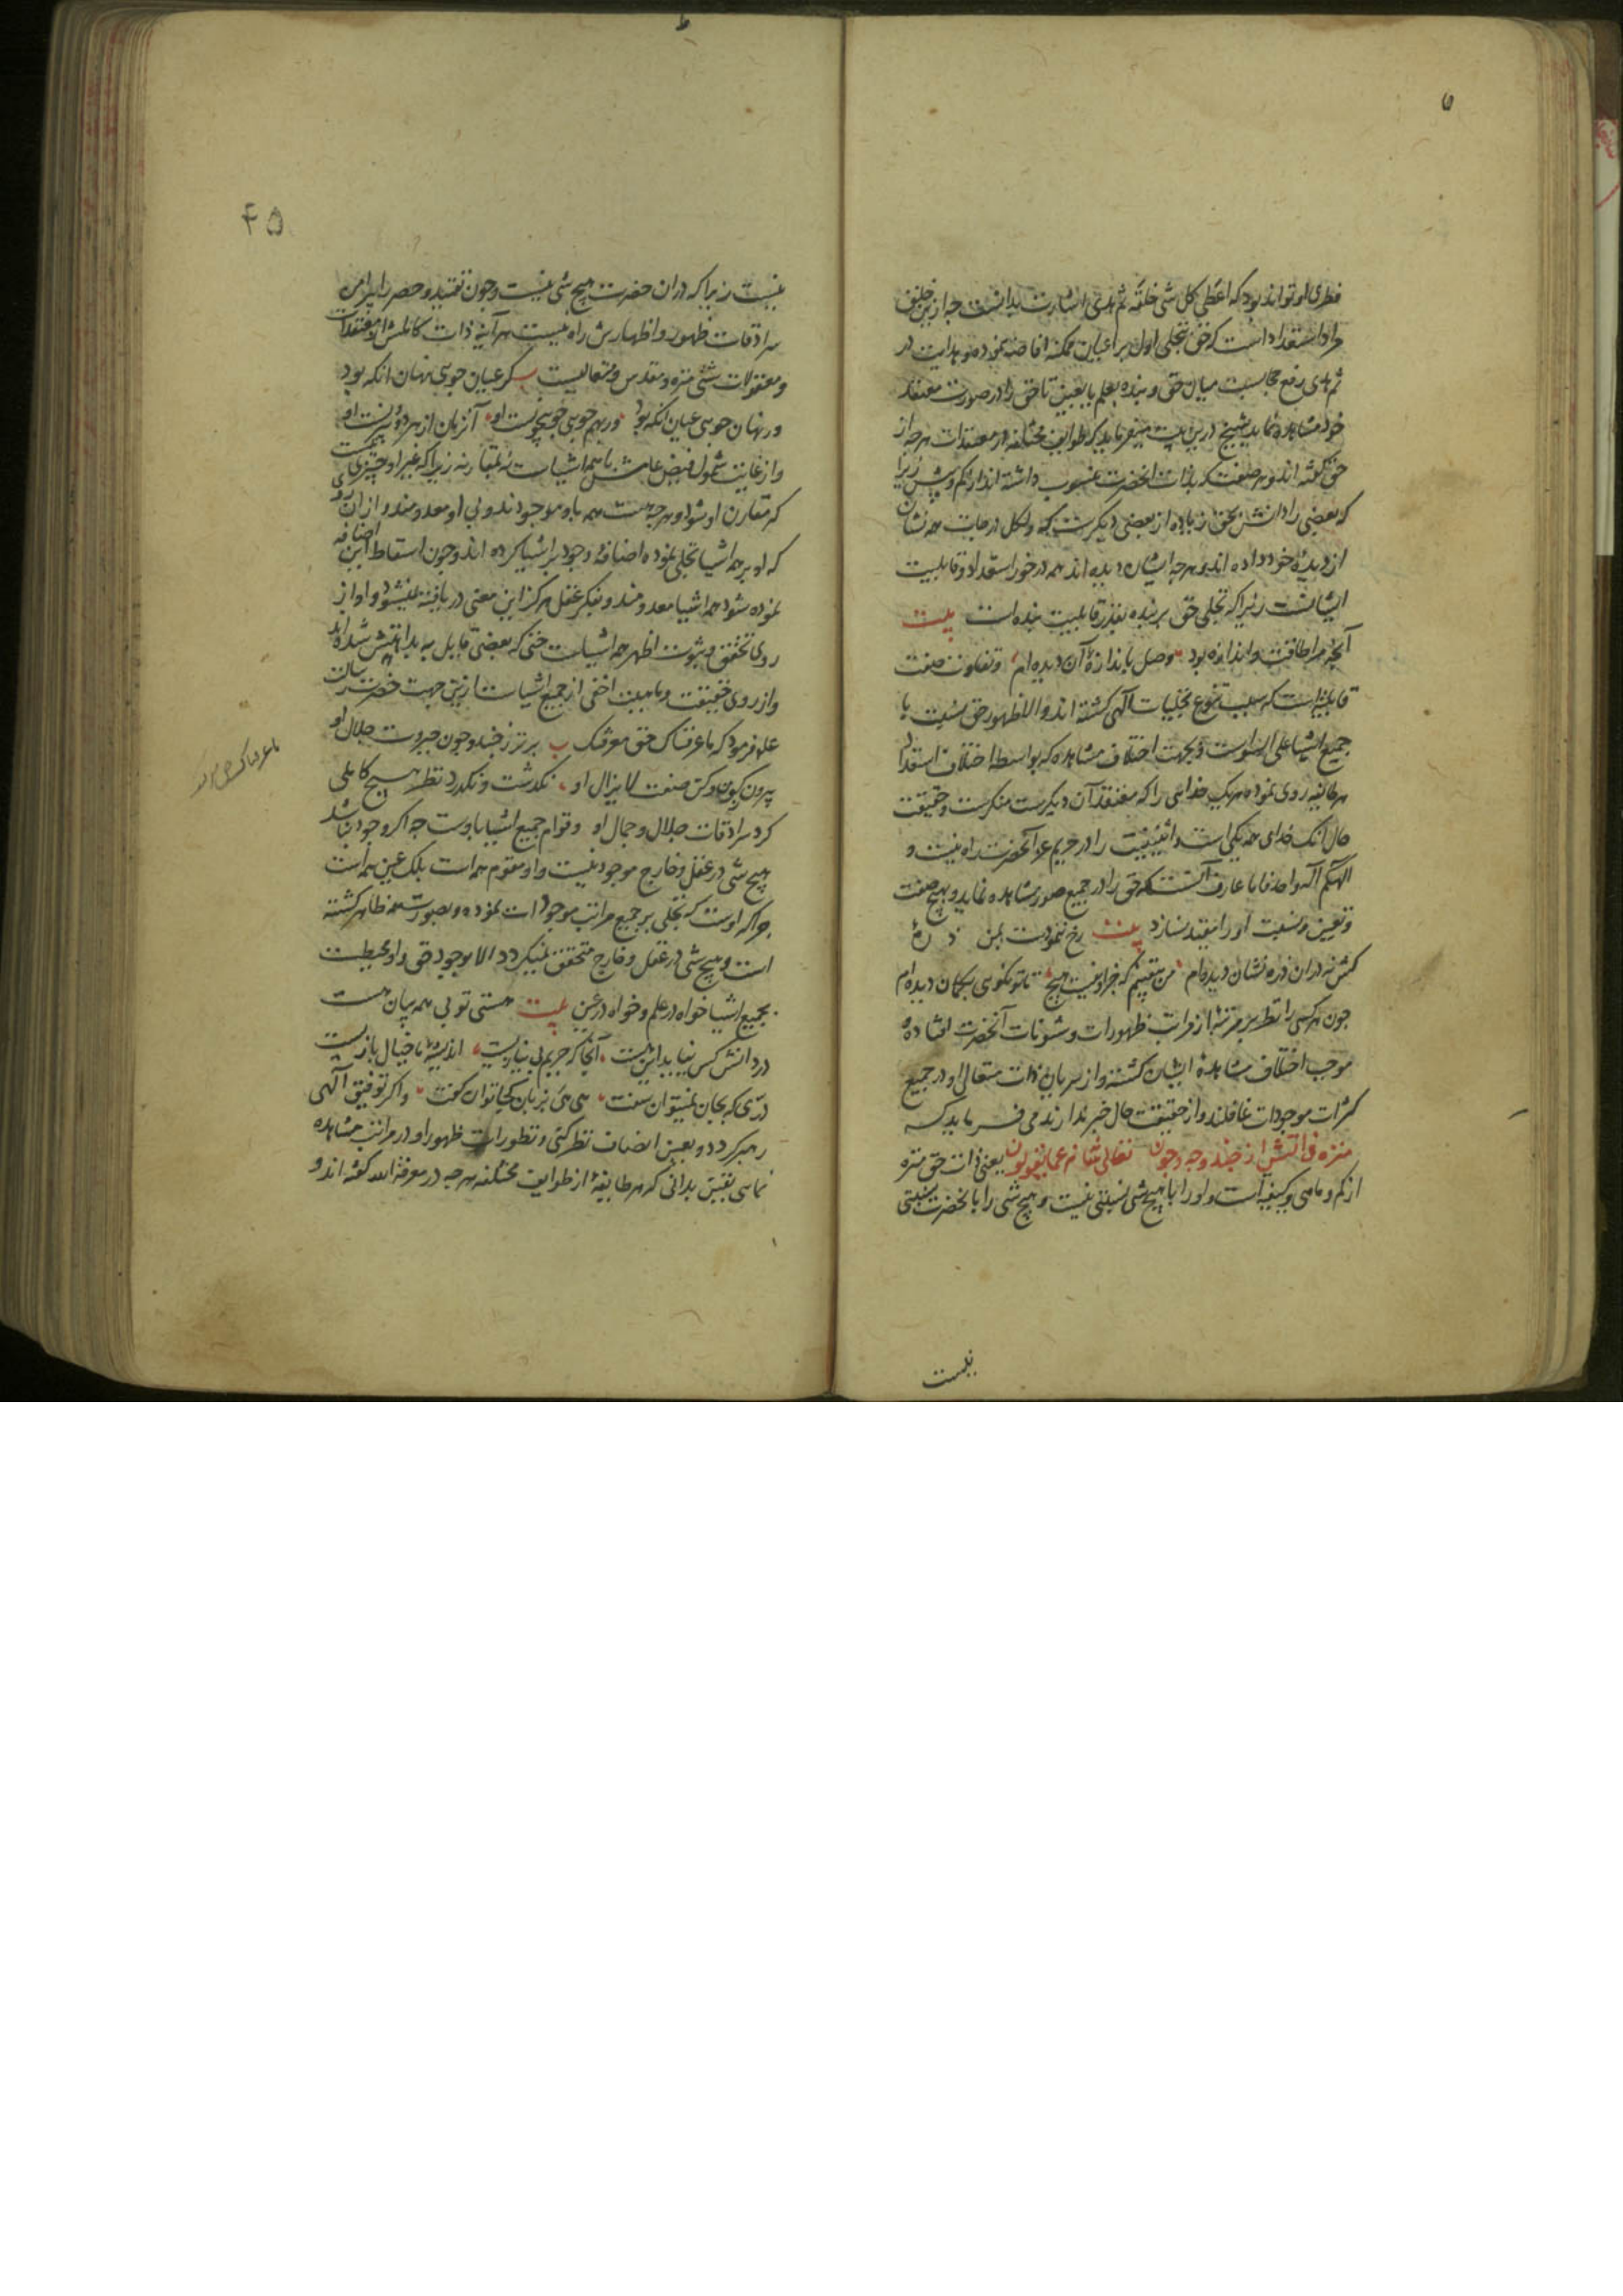 ۵
فطری او تواند بود که اعطی کل شی خلقه ثم هدی اشارت بدانست چه از خلق
مراد استعداد است که حق بتجلی اول بر اعیان ممکنه افاضه نموده و هدایت در
ثم هدی رفع حجابست میان حق و بنده بعلم یا بعین تا حق را در صورت معتقد
خود مشاهده نماید شیخ درین بیت میفرماید که طوایف مختلفه از معتقدات هرچه از
حق گفته اند و هر صفت که بذات آنحضرت منسوب داشته اند از کم و بیش زیرا
که بعضی را دانش بحق زیاده از بعضی دیگرست که ولکل درجات همه نشان
از دیده خود داده اند و هرچه ایشان دیده اند همه در خور استعداد و قابلیت
ایشانست زیرا که تجلی حق بر بنده بقدر قابلیت بنده است بیت
آنچه مرا طاقت و اندازه بود وصل باندازه آن دیده ام و تفاوت صفت
قابلیتست که سبب تنوع تجلیات الهی گشته اند و الا ظهور حق نسبت با
جمیع اشیا علی السواست و بجهت اختلاف مشاهده که بواسطه اختلاف استعداد
هر طایفه روی نموده هر یک خدایی را که معتقد آن دیگرست منکرست و حقیقت
حال آنک خدای همه یکی است و اثنینیت را در حریم عز آنحضرت راه نیست و
الهکم اله واحد فاما عارف آنست که حق را در جمیع صور مشاهده نماید و بهیچ صفت
و تعین و نسبت او را مقید نسازد بیت رخ نمودت بمن ذره
کش نه در ان ذره نشان دیده ام من بیقینم که جز او نیست هیچ تا تو نگویی بگمان دیده ام
چون هر کسی را نظر بر مرتبه از مراتب ظهورات و شئونات آنحضرت افتاده و
موجب اختلاف مشاهده ایشان گشته و از سریان ذات متعالی او در جمیع
کثرات موجودات غافلند و از حقیقت حال خبر ندارند می فرماید که
منزه ذاتش از چند و چه و چون تعالی شانه عما یقولون یعنی ذات حق منزه
از کم و ماهی و کیفیه است و او را با هیچ شی نسبتی نیست و هیچ شی را با آنحضرت نسبتی
نیست
۴۵
نیست زیرا که در ان حضرت هیچ شی نیست و چون تقیید و حصر را پیرامن
سرادقات ظهور و اظهارش راه نیست هر آینه ذات کاملش از معتقدات
و معقولات شتی منزه و مقدس و متعالیست ب گر عیان جویی نهان آنگه بود
ور نهان جویی عیان آنگه بود ور بهم جویی چو بیچونست او آن زمان از هر دو بیرونست او
و از غایت شمول فیض عامش با همه اشیاست نه بمقارنه زیرا که غیر او چیزی نیست
که مقارن او شود و هرچه هست همه باو موجودند و بی او معدومند و از ان رو
که او بر همه اشیا تجلی نموده اضافه وجود بر اشیا کرده اند و چون اسقاط این اضافه
نموده شود همه اشیا معدومند و بفکر عقل هرگز این معنی دریافته نمیشود و او از
روی تحقق و ثبوت اظهر همه اشیاست حتی که بعضی قایل به بداهتش شده اند
و از روی حقیقت و ماهیت اخفی از جمیع اشیاست ازین جهت حضرت رسالت
علم فرمود که ما عرفناک حق معرفتک ب برتر ز چند و چون جبروت جلال او
بیرون ز گون و کن صفت لایزال او نگذشت و نگذرد نظر هیچ کاملی
گرد سرادقات جلال و جمال او و قوام جمیع اشیا باوست چه اگر وجود نباشد
هیچ شی در عقل و خارج موجود نیست و او مقوم همه است بلک عین همه است
چرا که اوست که تجلی بر جمیع مراتب موجودات نموده و بصورت همه ظاهر گشته
است و هیچ شی در عقل و خارج متحقق نمیگردد الا بوجود حق و او محیطست
بجمیع اشیا خواه در علم و خواه در عین بیت هستی تو بی همه بیان هست
در دانش کس نیاید این هست آنجا که حریم بی نیازیست اندیشه ما خیال بازیست
دری که بجان نمیتوان سفت هی هی بزبان کجا توان گفت و اگر توفیق الهی
رهبر گردد و بعین انصاف نظر کنی و تطورات ظهور او در مراتب مشاهده
نمایی بیقین بدانی که هر طایفه از طوایف مختلفه هرچه در معرفة الله گفته اند و
ما عرفناک حق معرفتک